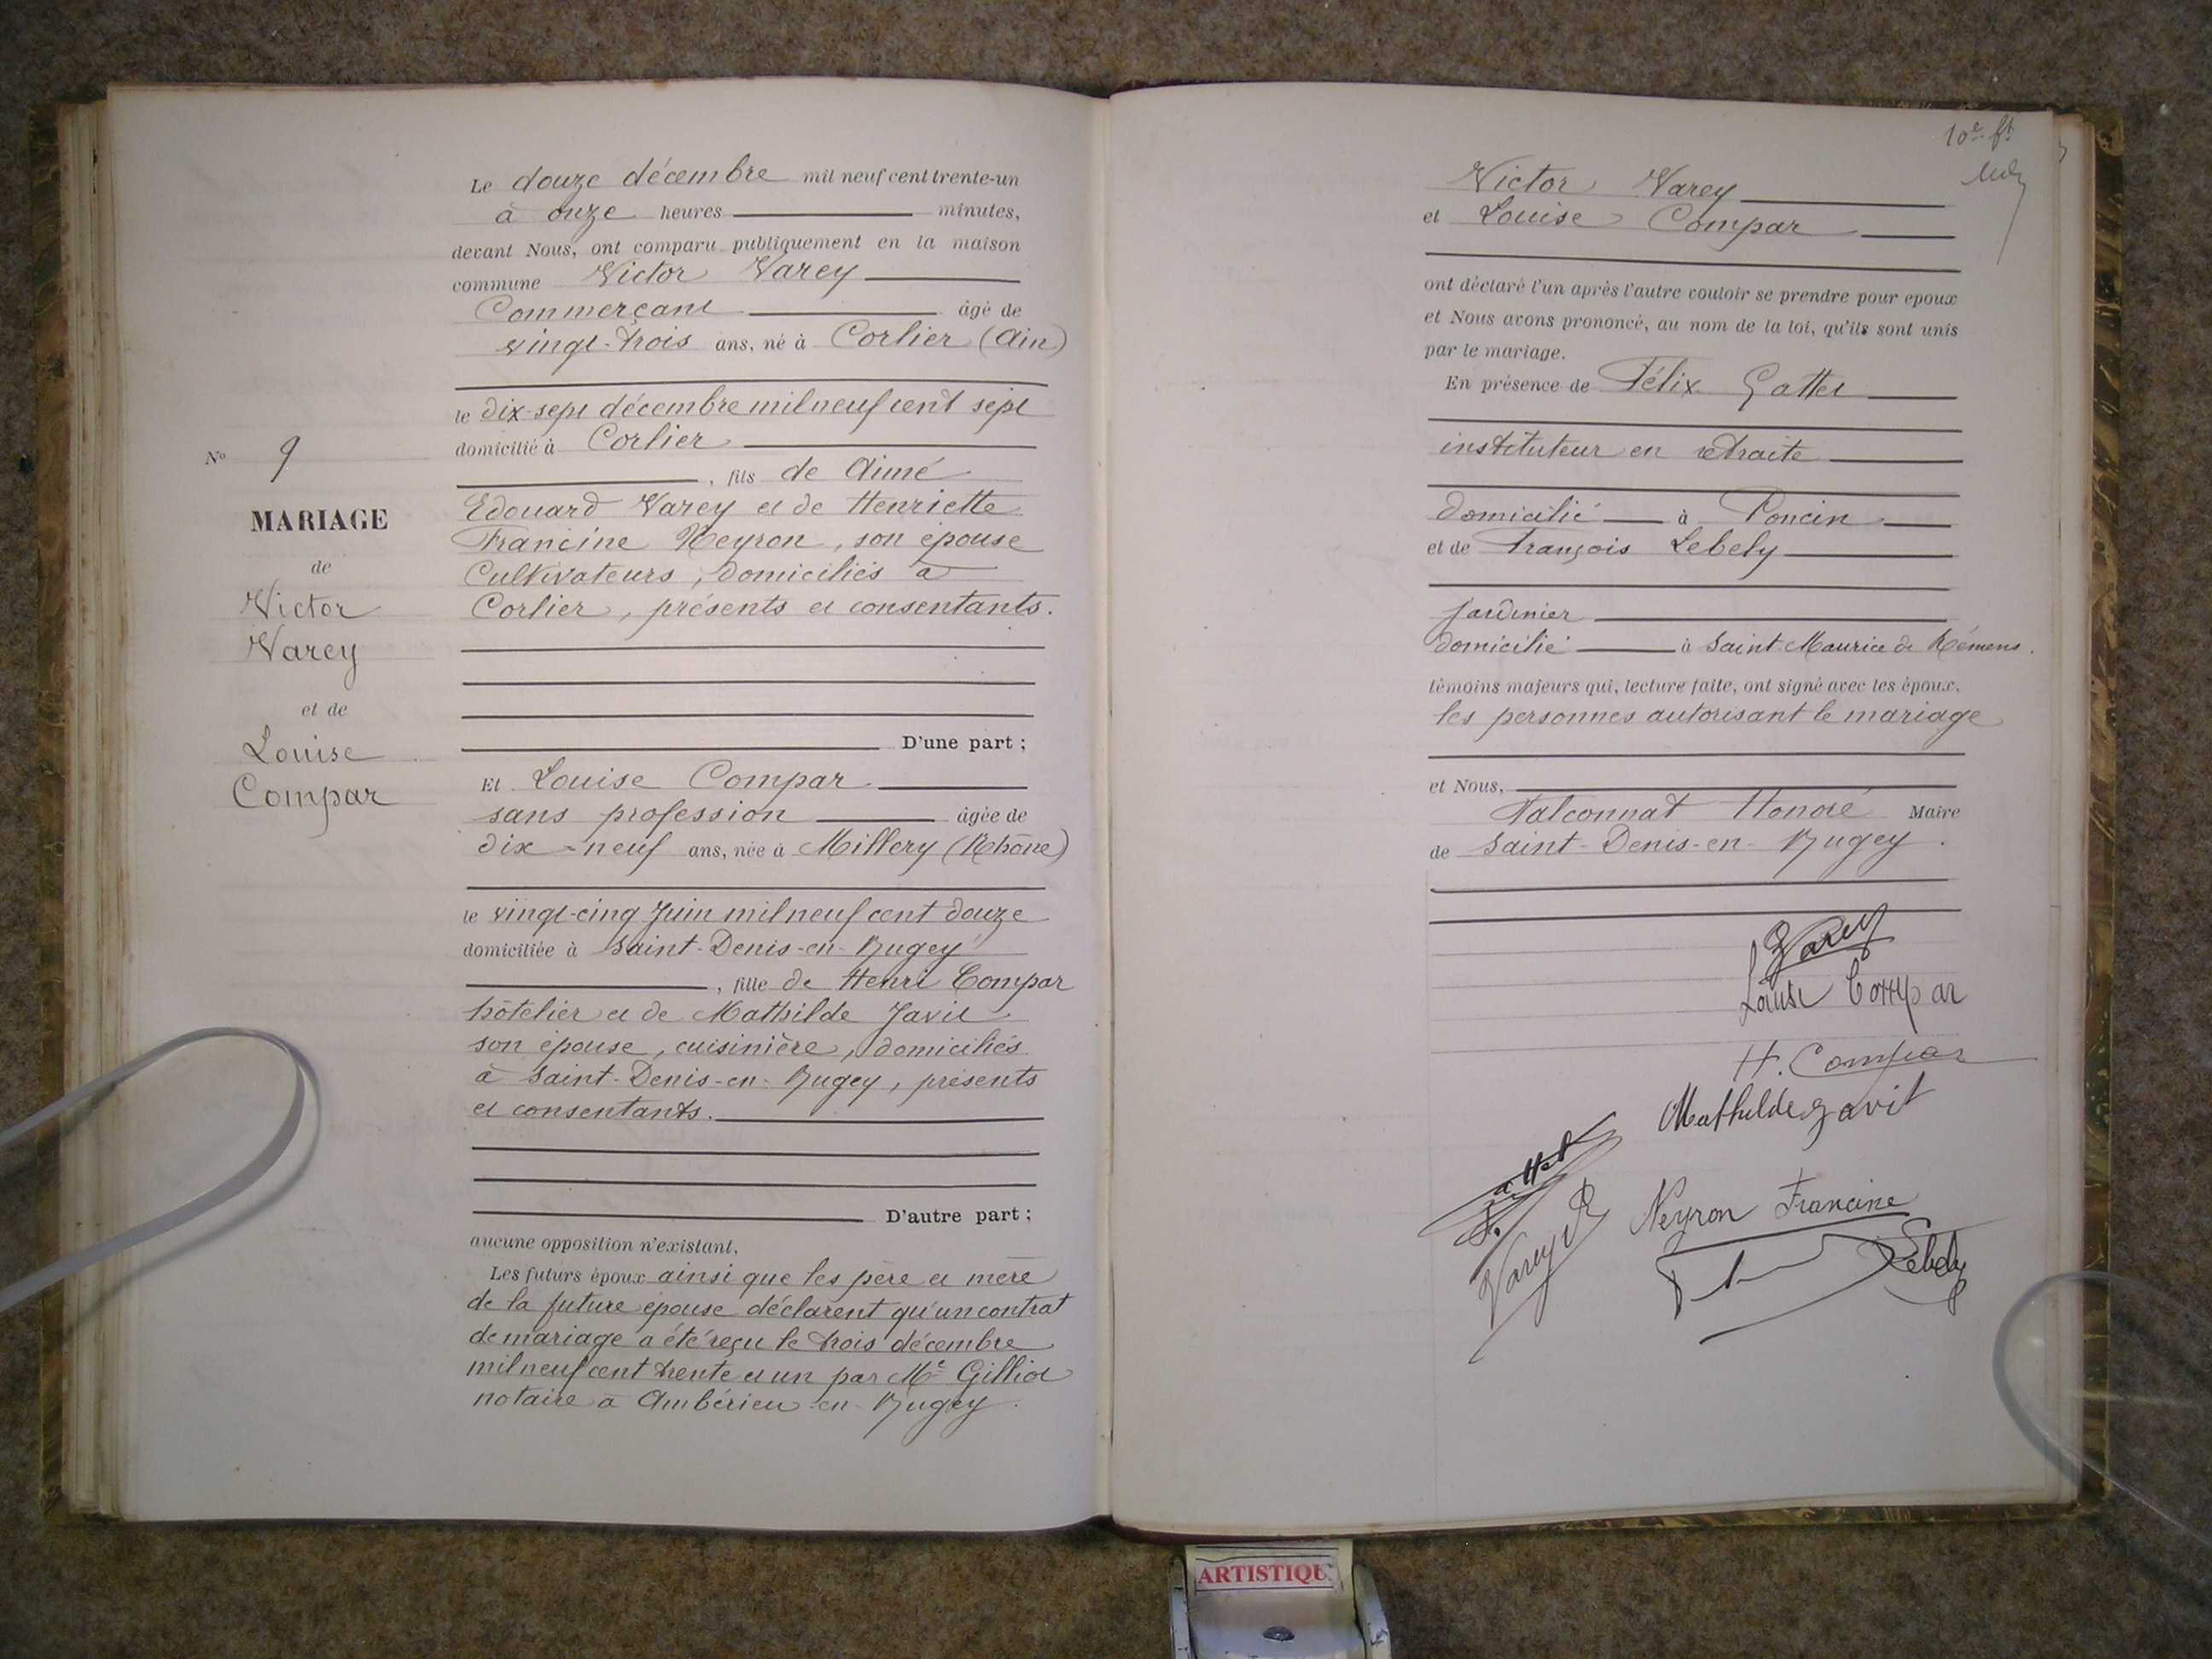 N° 9
MARIAGE
de
Victor
Varey
et de
Louise
Compar
Le douze décembre mil neuf cent trente-un
à onze heures minutes,
devant Nous, ont comparu publiquement en la maison
commune Victor Varey
Commerçant âgé de
vingt-trois ans, né à Corlier (Ain)
le dix-sept décembre mil neuf cent sept
domicilié à Corlier
, fils de Aimé
Edouard Varey et de Henriette
Francine Neyron, son épouse
Cultivateurs, domiciliés à
Corlier, présents et consentants.
D'une part ;
Et Louise Compar
sans profession âgée de
dix-neuf ans, née à Millery (Rhône)
le vingt-cinq Juin mil neuf cent douze
domiciliée à Saint-Denis-en-Bugey
, fille de Henri Compar
hôtelier et de Mathilde Javit
son épouse, cuisinière, domiciliés
à Saint-Denis-en-Bugey, présents
et consentants.
D'autre part ;
aucune opposition n'existant,
Les futurs époux ainsi que les père et mère
de la future épouse déclarent qu'un contrat
de mariage a été reçu le trois décembre
mil neuf cent trente et un par Me Gilliot
notaire à Ambérieu-en-Bugey.
10e ft
Victor Varey
et Louise Compar
ont déclaré l'un après l'autre vouloir se prendre pour époux
et Nous avons prononcé, au nom de la loi, qu'ils sont unis
par le mariage.
En présence de Félix Gattet
instituteur en retraite
domicilié à Poncin
et de François Lebely
jardinier
domicilié à Saint-Maurice de Rémens.
témoins majeurs qui, lecture faite, ont signé avec les époux,
les personnes autorisant le mariage
et Nous,
Falconnat Honoré Maire
de Saint-Denis-en-Bugey.
Varey
Louise Compar
H. Compar
Mathilde Javit
Gattet
Varey
Neyron Francine
Lebely
ARTISTIQU